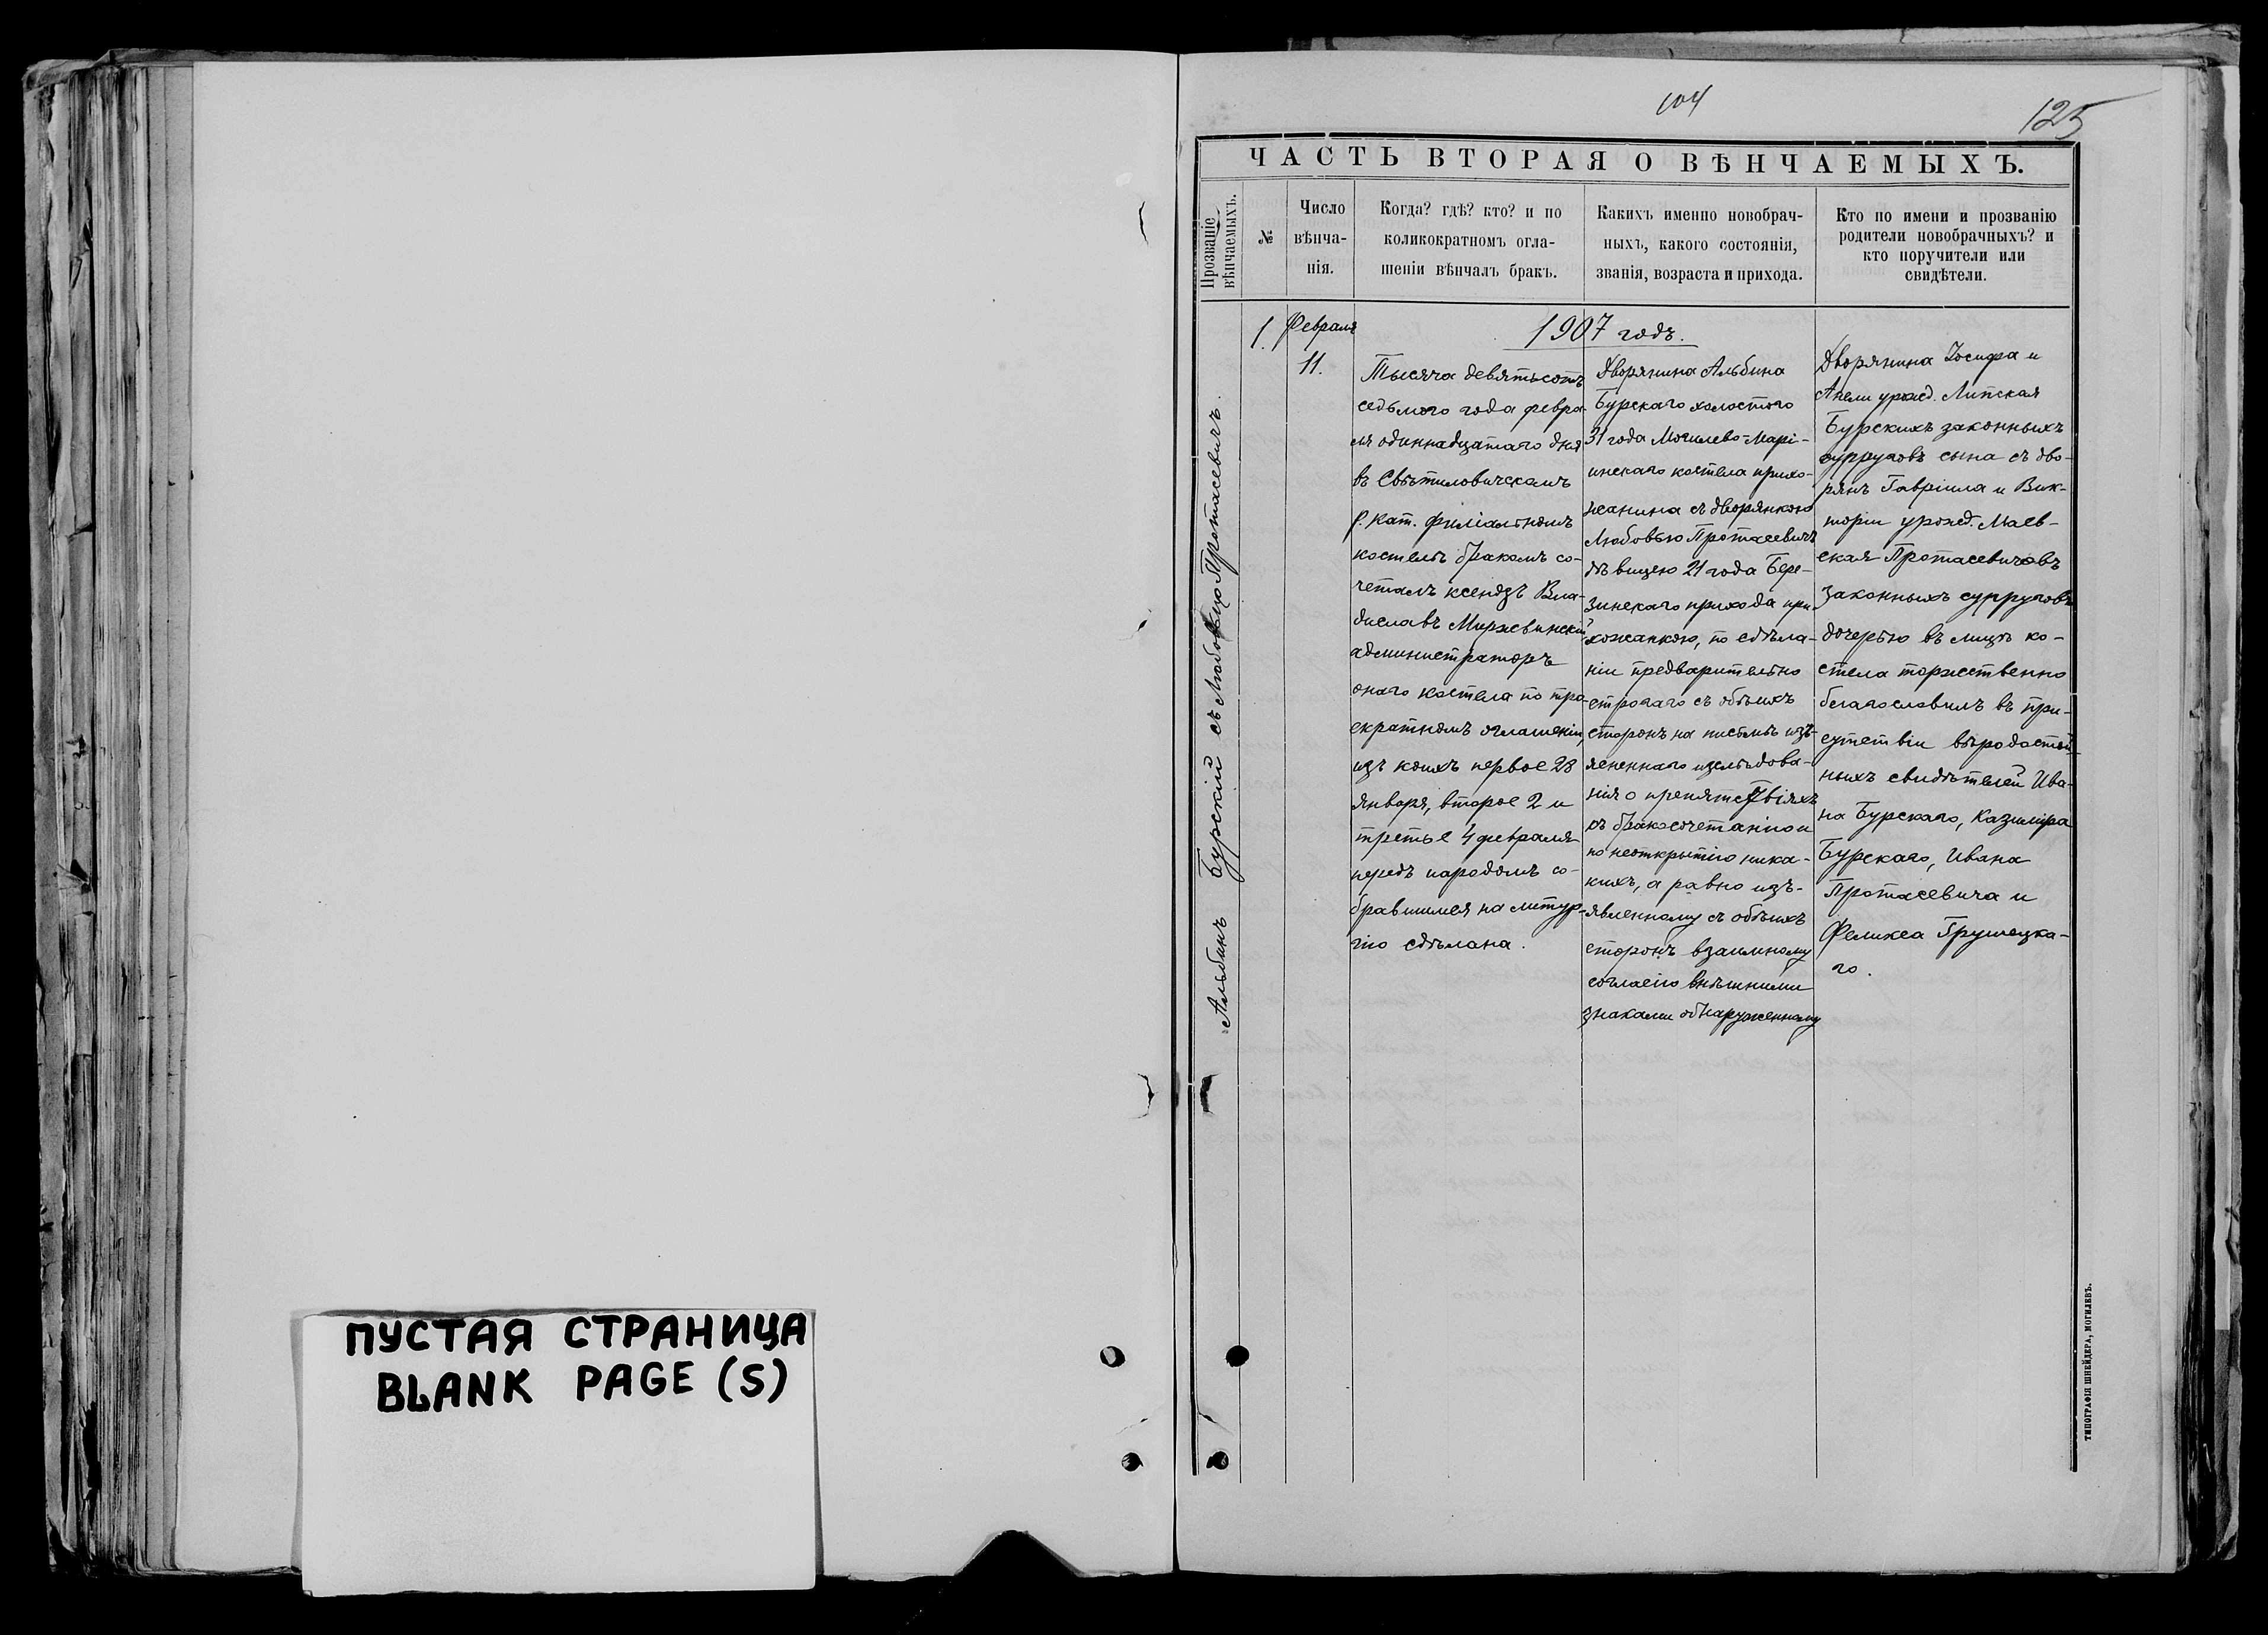 ПУСТАЯ СТРАНИЦА
BLANK PAGE (S)
104
125
ЧАСТЬ ВТОРАЯ О ВѢНЧАЕМЫХЪ.
Прозваніе
вѣнчаемыхъ.
№
Число
вѣнча-
нія.
Когда? гдѣ? кто? и по
коликократномъ огла-
шеніи вѣнчалъ бракъ.
Какихъ именно новобрач-
ныхъ, какого состоянія,
званія, возраста и прихода.
Кто по имени и прозванію
родители новобрачныхъ? и
кто поручители или
свидѣтели.
Альбинъ Бурскій съ Любовью Протасевичъ.
1.
Февраля
11.
1907 годъ.
Тысяча девятьсотъ
седьмого года февра-
ля одиннадцатаго дня
въ Свѣтиловическомъ
р. кат. филіальномъ
костелѣ бракомъ со-
четалъ ксендзъ Вла-
диславъ Миржвинскій
администраторъ
онаго костела по тро-
екратномъ оглашеніи,
изъ коихъ первое 28
января, второе 2 и
третье 4 февраля
передъ народомъ со-
бравшимся на литур-
гію сдѣлана.
Дворянина Альбина
Бурскаго холостого
31 года Могилево-Марі-
инскаго костела прихо-
жанина съ дворянкою
Любовью Протасевичъ
дѣвицею 21 года Бере-
зинскаго прихода при-
хожанкою, по сдѣла-
ніи предварительно
строгаго съ обѣихъ
сторонъ на письмѣ изъ-
ясненнаго изслѣдова-
нія о препятствіяхъ
къ бракосочетанію и
по неоткрытію ника-
кихъ, а равно изъ-
явленному съ обѣихъ
сторонъ взаимному
согласію внѣшними
знаками обнаруженному
Дворянина Іосифа и
Анели урожд. Липская
Бурскихъ законныхъ
супруговъ сына съ дво-
рянъ Гавріила и Вик-
торіи урожд. Маев-
ская Протасевичовъ
законныхъ супруговъ
дочерью въ лицѣ ко-
стела торжественно
благословилъ въ при-
сутствіи вѣродостой-
ныхъ свидѣтелей Ива-
на Бурскаго, Казиміра
Бурскаго, Ивана
Протасевича и
Феликса Грушецка-
го.
ТИПОГРАФІЯ ШНЕЙДЕРА, МОГИЛЕВЪ.